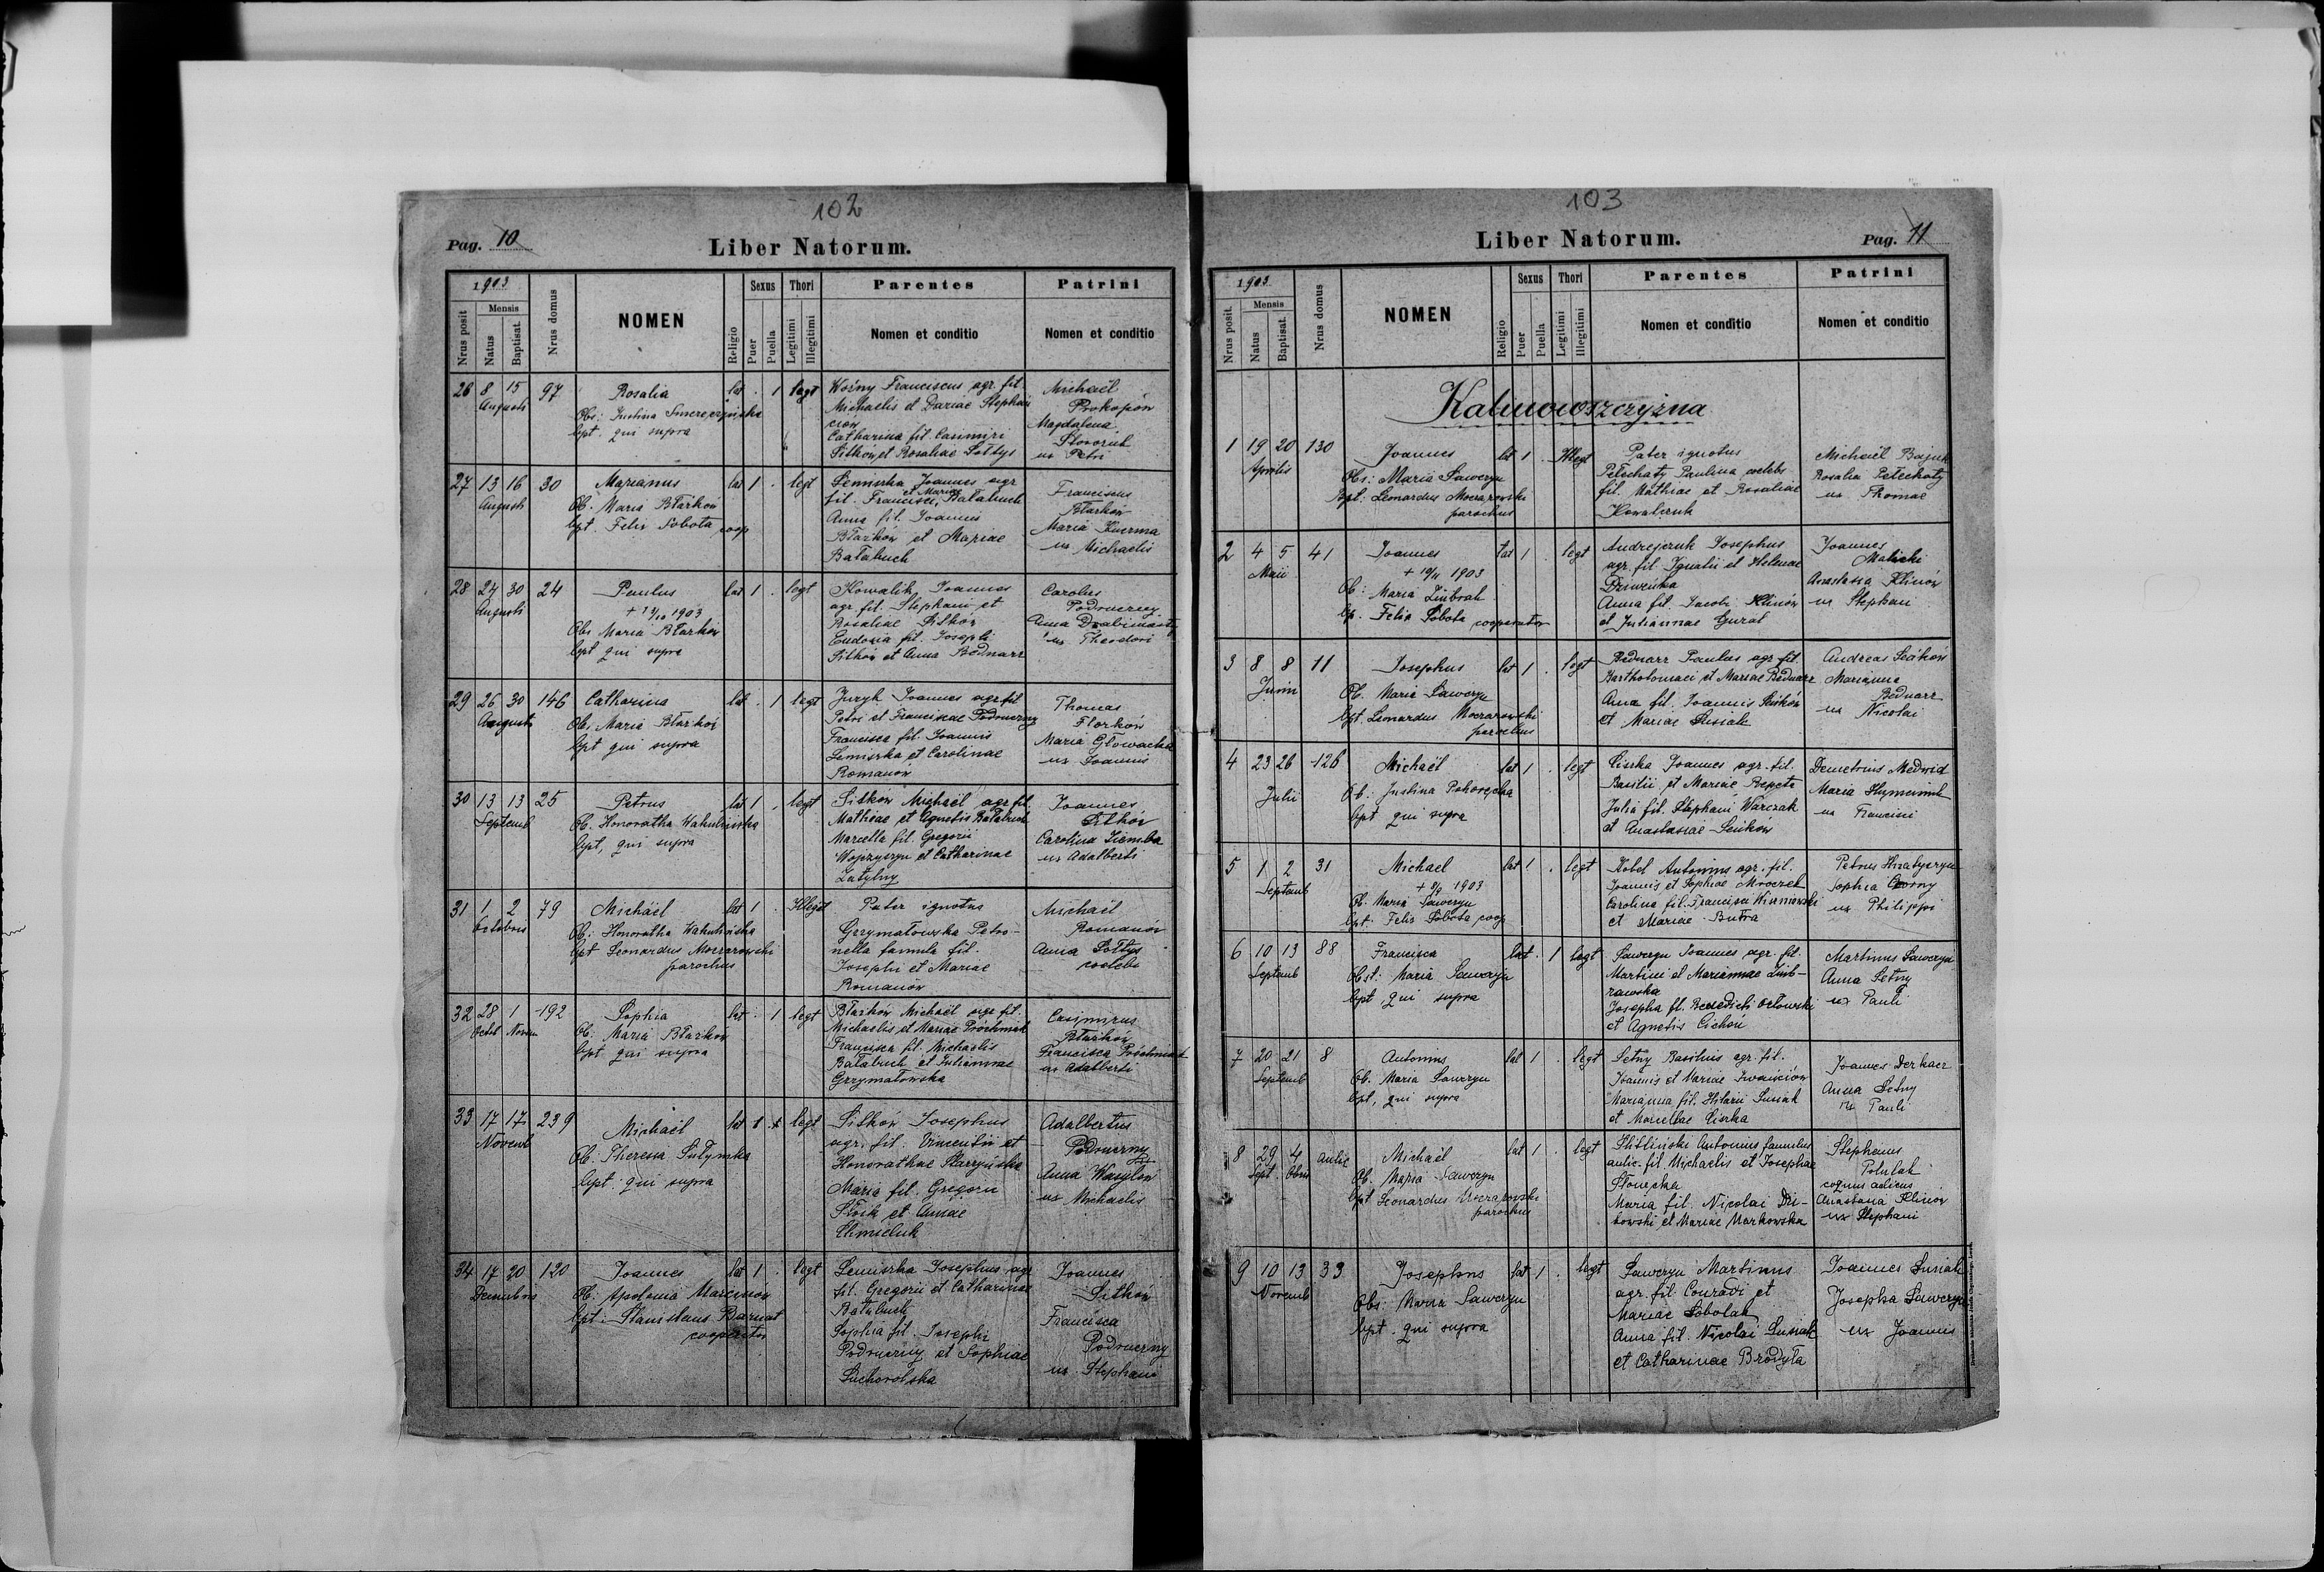 102
Pag. 10
Liber Natorum.
1903
Nrus posit
Mensis
Natus
Baptisat.
Nrus domus
NOMEN
Religio
Sexus
Puer
Puella
Thori
Legitimi
Illegitimi
Parentes
Nomen et conditio
Patrini
Nomen et conditio
26 8 15 97 Rosalia lat . 1 legt Woźny Franciscus agr. fil. Michaël
Augusti Michaelis et Dariae Prokopów
Obs: Justina Magdalena
bpt. qui supra Catharina fil. Casimiri
Sitków et Rosaliae Sołtys ux Petri
27 13 16 30 Marianus lat 1 . legt Lemiszka Joannes agr Franciscus
Augusti fil. Francisci et Mariae Bałabuch Błażków
Ob. Maria Błażków Anna fil. Joannis Maria
bpt. Felix Sobota coop Błażków et Mariae ux Michaelis
Bałabuch
28 27 30 24 Paulus lat 1 . legt Kowalik Joannes Carolus
Augusti 1903 agr. fil. Stephani et Podruczny
Obs Maria Błażków Rosaliae Sitków Anna
bpt qui supra Eudoxia fil. Josephi ux Theodori
Sitków et Anna Bednarz
29 26 30 146 Catharina lat . 1 legt Joannes agr fil Thomas
Augusti Petri et Franciscae Podruczny Florków
Ob. Maria Błażków Francisca fil. Joannis Maria Głowacka
bpt qui supra Lemiszka et Carolinae ux Joannis
Romanów
30 13 13 25 Petrus lat 1 . legt Sitków Michaël agr fil. Joannes
Septemb Mathiae et Agnetis Bałabuch Sitków
Ob. Honoratha Marcella fil. Gregorii Carolina Ziemba
bpt, qui supra et Catharinae ux Adalberti
31 1 2 79 Michaël lat 1 . Illegt Pater ignotus Michaël
Octobris Grzymałowska Petro- Romanów
Ob: Honoratha nella famula fil. Anna Sołtys
bpt Leonardus Moczarowski Josephi et Mariae coelebs
parochus Romanów
32 28 1 192 Sophia lat . 1 legt Błażków Michaël agr fil. Casimirus
Octob Novem Michaelis et Mariae Próchniak Błażków
Ob: Maria Błażków Francisca fil. Michaelis Francisca Próchniak
bpt qui supra Bałabuch et Juliannae ux Adalberti
Grzymałowska
33 17 17 239 Michaël lat 1 . legt Sitków Josephus Adalbertus
Novemb agr. fil. Vincentii et Podruczny
Ob. Theressa Honorathae Anna Wasylów
bpt. qui supra Maria fil. Gregorii ux Michaelis
et Annae
34 17 20 120 Joannes lat 1 . legt Lemiszka Josephus agr Joannes
Decembris fil. Gregorii et Catharinae Sitków
Ob: Apolonia Marcinów Bałabuch Francisca
bpt: Stanislaus Barnat Sophia fil. Josephi Podruczny
cooperator Podruczny et Sophiae ux Stephani
103
Liber Natorum.
Pag. 11
1903
Nrus posit.
Mensis
Natus
Baptisat.
Nrus domus
NOMEN
Religio
Sexus
Puer
Puella
Thori
Legitimi
Illegitimi
Parentes
Nomen et conditio
Patrini
Nomen et conditio
Kalinowszczyzna
1 19 20 130 Joannes lat 1 . Illegt Pater ignotus Michaël
Aprilis Pełechaty Paulina coelebs Rosalia Pełechaty
Obs: Maria Sawczyn fil. Mathiae et Rosaliae ux Thomae
Bpt: Leonardus Moczarowski Kowalczuk
parochus
2 4 5 41 Joannes lat 1 . legt Andrejczuk Josephus Joannes
Maii 1903 agr. fil. Ignatii et Helenae Malicki
Ob: Maria Anastasia Klimów
bp. Felix Sobota cooperator Anna fil. Jacobi Klimów ux Stephani
et Juliannae Gurat
3 8 8 11 Josephus lat 1 . legt Bednarz Paulus agr fil. Andreas
Junii Bartholomaei et Mariae Bednarz Marianna
Ob. Maria Sawczyn Anna fil. Joannis Bednarz
bpt. Leonardus Moczarowski et Mariae Susiak ux Nicolai
parochus
4 23 26 126 Michaël lat 1 . legt Ciszka Joannes agr. fil. Demetrius Medwid
Julii Basilii et Mariae Maria
Ob: Justina Julia fil. Stephani Warczak ux Francisci
bpt qui supra et Anastasiae
5 1 2 31 Michael lat 1 . legt Kobel Antonius agr. fil. Petrus
Septemb 1903 Joannis et Sophiae Mroczek Sophia
Ob. Maria Sawczyn Carolina fil. Francisci ux Philippi
bpt. Felix Sobota coop et Mariae Butra
6 10 13 88 Francisca lat . 1 legt Sawczyn Joannes agr. fil. Martinus Sawczyn
Septemb Martini et Mariannae Anna Letny
Obst. Maria Sawczyn Josepha fil. Benedicti Orłowski ux Pauli
bpt, qui supra et Agnetis Cichoń
7 20 21 8 Antonius lat 1 . legt Letny Basilius agr. fil. Joannes Derkacz
Septemb Joannis et Mariae Iwanciów Anna Letny
Ob. Maria Sawczyn Marianna fil. Hilarii Susiak ux Pauli
bpt, qui supra et Marcellae Ciszka
8 29 4 aulic Michaël lat 1 . legt Antonius famulus Stephanus
Sept Obris aulic. fil. Michaelis et Josephae
Ob. Maria Sawczyn Anastasia Klimów
bpt Leonardus Moczarowski Maria fil. Nicolai ux Stephani
parochus et Mariae Markowska
9 10 13 33 Josephus lat 1 . legt Sawczyn Martinus Joannes Susiak
Novemb agr. fil. Conradi et Josepha Sawczyn
Obs: Maria Sawczyn Mariae Sobolak ux Joannis
bpt. qui supra Anna fil. Nicolai Susiak
et Catharinae Brodyła